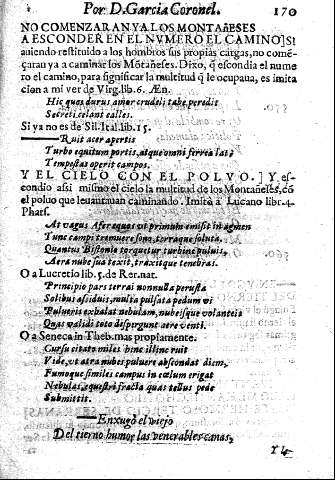 Por D. Garcia Coronel. 170
NO COMENZARAN YA LOS MONTAñESES
A ESCONDER EN EL NVMERO EL CAMINO] Si
auiendo restituido a los hombros sus propias cargas, no comẽ-
çaran ya a caminar los Mõtañeses. Dixo, q̃ escondia el nume
ro el camino, para significar la multitud q̃ le ocupaua, es imita
cion a mi ver de Virg. lib. 6. Æn.
Hic quos durus amor crudeli tabe peredit
Secreti celant calles.
Si ya no es de Sil. Ital. lib. 15.
Ruit acer apertis
Turbo equitum portis, atque omni ferrea lat
Tempestas operit campos.
Y EL CIELO CON EL POLVO.] Y es-
condio assi mismo el cielo la multitad de los Montañeses, cõ
el poluo que leuantauan caminando. Imita à Lucano libr. 4.
Phars.
At vagus Afer equas vt primum emisit in agmen
Tunc campi tremuere sono, terraque soluta.
Quantus Bistonio torquetur turbine puluis,
Aera nube sua texit, traxitque tenebras.
O a Lucretio lib. 5. de Rer. nat.
Principio pars terrai nonnulla perusta
Solibus assiduis, multa pulsata pedum vi
Pulueris exhalat nebulam, nubesque volanteis
Quas validi toto despergunt aere venti.
O a Seneca in Theb. mas proplamente.
Cursu citato miles hinc illinc ruit
Vide, vt atra nubes puluere abscondat diem,
Fumoque similes campus in cœlum erigat
Nebulas, equestri fracta quas tellus pede
Submittit.
Enxugò el viejo
Del tierno humor las venerables canas,